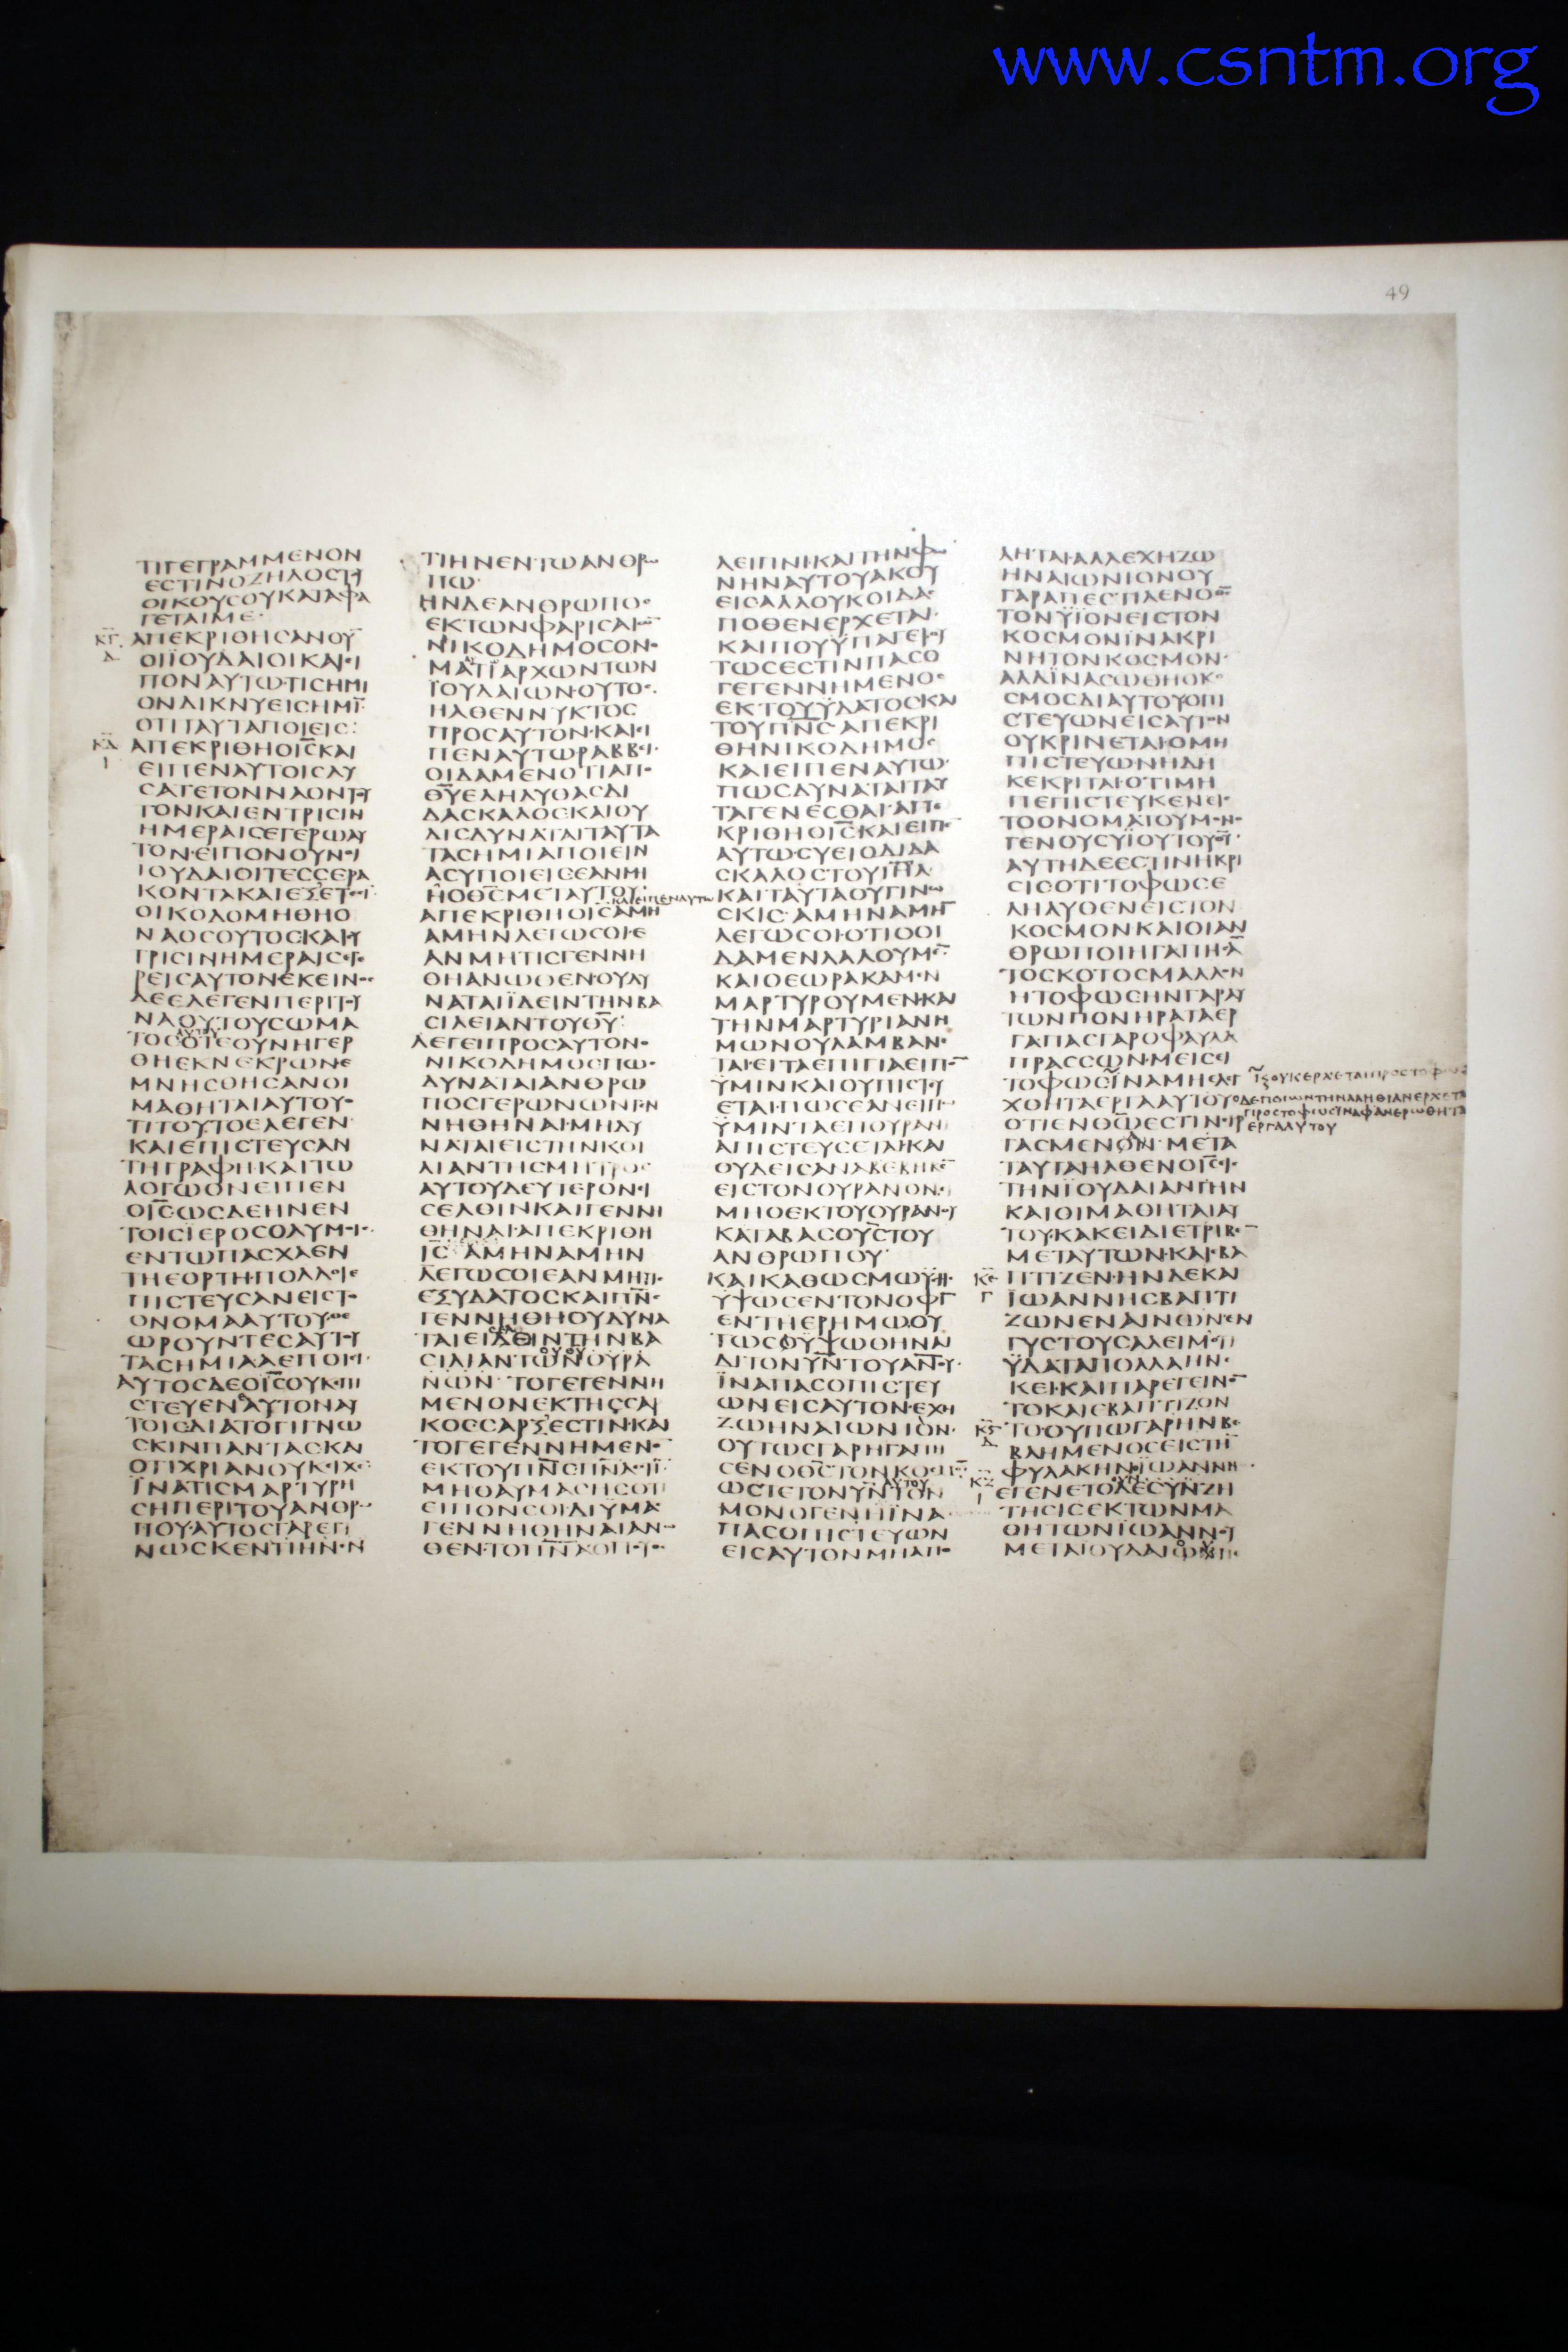 www.csntm.org
49
ΤΙΓΕΓΡΑΜΜΕΝΟΝ
ΕCΤΙΝΟΖΗΛΟCΤΟΥ
ΟΙΚΟΥCΟΥΚΑΤΑΦΑ
ΓΕΤΑΙΜΕ·
ΚΓ ΑΠΕΚΡΙΘΗCΑΝΟΥ̅
Α ΟΙΪΟΥΔΑΙΟΙΚΑΙΕΙ
ΠΟΝΑΥΤΩ·ΤΙCΗΜΙ
ΟΝΔΙΚΝΥΕΙCΗΜΙ̅
ΟΤΙΤΑΥΤΑΠΟΙΕΙC:
ΚΔ ΑΠΕΚΡΙΘΗΟΙ̅C̅ΚΑΙ
Ι ΕΙΠΕΝΑΥΤΟΙCΛΥ
CΑΤΕΤΟΝΝΑΟΝΤΟΥ
ΤΟΝΚΑΙΕΝΤΡΙCΙΝ
ΗΜΕΡΑΙCΕΓΕΡΩΑΥ
ΤΟΝ·ΕΙΠΟΝΟΥΝΟΙ
ΙΟΥΔΑΙΟΙΤΕCCΕΡΑ
ΚΟΝΤΑΚΑΙΕΞΕΤΕCΙ
ΟΙΚΟΔΟΜΗΘΗΟ
ΝΑΟCΟΥΤΟCΚΑΙCΥ
ΤΡΙCΙΝΗΜΕΡΑΙCΕΓΕ
ΡΕΙCΑΥΤΟΝΕΚΕΙΝΟC
ΔΕΕΛΕΓΕΝΠΕΡΙΤΟΥ
ΝΑΟΥΤΟΥCΩΜΑ
ΑΥΤΟΥ
ΤΟCΟΤΕΟΥΝΗΓΕΡ
ΘΗΕΚΝΕΚΡΩΝΕ
ΜΝΗCΘΗCΑΝΟΙ
ΜΑΘΗΤΑΙΑΥΤΟΥΟ
ΤΙΤΟΥΤΟΕΛΕΓΕΝ
ΚΑΙΕΠΙCΤΕΥCΑΝ
ΤΗΓΡΑΦΗΚΑΙΤΩ
ΛΟΓΩΟΝΕΙΠΕΝ
ΟΙ̅C̅ΩCΔΕΗΝΕΝ
ΤΟΙCΙΕΡΟCΟΛΥΜΟΙC
ΕΝΤΩΠΑCΧΑΕΝ
ΤΗΕΟΡΤΗΠΟΛΛΟΙΕ
ΠΙCΤΕΥCΑΝΕΙCΤΟ
ΟΝΟΜΑΑΥΤΟΥΘΕ
ΩΡΟΥΝΤΕCΑΥΤΟΥ
ΤΑCΗΜΙΑΑΕΠΟΙΕΙ
ΑΥΤΟCΔΕΟΙ̅C̅ΟΥΚΕΠΙ
CΤΕΥΕΝΑΥΤΟΝΑΥ
ΤΟΙCΔΙΑΤΟΓΙΓΝΩ
CΚΙΝΠΑΝΤΑCΚΑΙ
ΟΤΙΧΡΙΑΝΟΥΚΙΧΕ
ΪΝΑΤΙCΜΑΡΤΥΡΗ
CΗΠΕΡΙΤΟΥΑΝΘΡΩ
ΠΟΥ·ΑΥΤΟCΓΑΡΕΓΙ
ΝΩCΚΕΝΤΙΗΝΕΝ
ΤΙΗΝΕΝΤΩΑΝΘΡΩ
ΠΩ·
ΗΝΔΕΑΝΘΡΩΠΟC
ΕΚΤΩΝΦΑΡΙCΑΙΩ̅
ΝΙΚΟΔΗΜΟCΟΝΟ
ΜΑΤΙΑΡΧΩΝΤΩΝ
ΪΟΥΔΑΙΩΝ·ΟΥΤΟC
ΗΛΘΕΝΝΥΚΤΟC
ΠΡΟCΑΥΤΟΝ·ΚΑΙΕΙ
ΠΕΝΑΥΤΩΡΑΒΒΕΙ·
ΟΙΔΑΜΕΝΟΤΙΑΠΟ
Θ̅Υ̅ΕΛΗΛΥΘΑCΔΙ
ΔΑCΚΑΛΟCΚΑΙΟΥ
ΔΙCΔΥΝΑΤΑΙΤΑΥΤΑ
ΤΑCΗΜΙΑΠΟΙΕΙΝ
ΑCΥΠΟΙΕΙCΕΑΝΜΗ
ΗΟΘ̅C̅ΜΕΤΑΥΤΟΥ:
ΚΑΙΕΙΠΕΝΑΥΤΩ
ΑΠΕΚΡΙΘΗΟΙ̅C̅ΑΜΗ
ΑΜΗΝΛΕΓΩCΟΙΕ
ΑΝΜΗΤΙCΓΕΝΝΗ
ΘΗΑΝΩΘΕΝ·ΟΥΔΥ
ΝΑΤΑΙΪΔΕΙΝΤΗΝΒΑ
CΙΛΕΙΑΝΤΟΥΘ̅Υ̅:
ΛΕΓΕΙΠΡΟCΑΥΤΟΝΟ
ΝΙΚΟΔΗΜΟCΠΩC
ΔΥΝΑΤΑΙΑΝΘΡΩ
ΠΟCΓΕΡΩΝΩΝΓΕΝ
ΝΗΘΗΝΑΙ·ΜΗΔΥ
ΝΑΤΑΙΕΙCΤΗΝΚΟΙ
ΛΙΑΝΤΗCΜΗΤΡΟC
ΑΥΤΟΥΔΕΥΤΕΡΟΝΕΙ
CΕΛΘΙΝΚΑΙΓΕΝΝΗ
ΘΗΝΑΙ·ΑΠΕΚΡΙΘΗ
Ι̅C̅ ΑΜΗΝΑΜΗΝ
ΛΕΓΩCΟΙΕΑΝΜΗΤΙC
ΕΞΥΔΑΤΟCΚΑΙΠ̅Ν̅C
ΓΕΝΝΗΘΗΟΥΔΥΝΑ
ΤΑΙΕΙCΕΛΘΙΝΤΗΝΒΑ
CΙΛΙΑΝΤΩΝΟΥΡΑ
ΝΩΝ ΤΟΓΕΓΕΝΝΗ
ΜΕΝΟΝΕΚΤΗCCΑΡ
ΚΟCCΑΡΞΕCΤΙΝ·ΚΑΙ
ΤΟΓΕΓΕΝΝΗΜΕΝΟ̅
ΕΚΤΟΥΠ̅Ν̅C̅Π̅Ν̅Α̅ΕCΤΙ̅
ΜΗΘΑΥΜΑCΗCΟΤΙ
ΕΙΠΟΝCΟΙ·ΔΙΥΜΑC
ΓΕΝΝΗΘΗΝΑΙΑΝΩ
ΘΕΝ·ΤΟΠ̅Ν̅Α̅ΟΠΟΥΘΕ
ΛΕΙΠΝΙ·ΚΑΙΤΗΝΦΩ
ΝΗΝΑΥΤΟΥΑΚΟΥ
ΕΙCΑΛΛΟΥΚΟΙΔΑC
ΠΟΘΕΝΕΡΧΕΤΑΙ·
ΚΑΙΠΟΥΥΠΑΓΕΙΟΥ
ΤΩCΕCΤΙΝΠΑCΟ
ΓΕΓΕΝΝΗΜΕΝΟC
ΕΚΤΟΥΥΔΑΤΟCΚΑΙ
ΤΟΥΠ̅Ν̅C̅ ΑΠΕΚΡΙ
ΘΗΝΙΚΟΔΗΜΟC
ΚΑΙΕΙΠΕΝΑΥΤΩ·
ΠΩCΔΥΝΑΤΑΙΤΑΥ
ΤΑΓΕΝΕCΘΑΙ·ΑΠΕ
ΚΡΙΘΗΟΙ̅C̅ΚΑΙΕΙΠΕ̅
ΑΥΤΩ·CΥΕΙΟΔΙΔΑ
CΚΑΛΟCΤΟΥΙ̅Η̅Λ̅·
ΚΑΙΤΑΥΤΑΟΥΓΙΝΩ
CΚΙC·ΑΜΗΝΑΜΗ̅
ΛΕΓΩCΟΙ·ΟΤΙΟΟΙ
ΔΑΜΕΝΛΑΛΟΥΜΕ̅
ΚΑΙΟΕΩΡΑΚΑΜΕΝ
ΜΑΡΤΥΡΟΥΜΕΝ·ΚΑΙ
ΤΗΝΜΑΡΤΥΡΙΑΝΗ
ΜΩΝΟΥΛΑΜΒΑΝΕ
ΤΑΙ·ΕΙΤΑΕΠΙΓΙΑΕΙΠΟ̅
ΫΜΙΝΚΑΙΟΥΠΙCΤΕΥ
ΕΤΑΙ·ΠΩCΕΑΝΕΙΠΩ
ΫΜΙΝΤΑΕΠΟΥΡΑΝΙ
ΑΠΙCΤΕΥCΕΤΑΙ·ΚΑΙ
ΟΥΔΕΙCΑΝΑΒΕΒΗΚΕ̅
ΕΙCΤΟΝΟΥΡΑΝΟΝ·ΕΙ
ΜΗΟΕΚΤΟΥΟΥΡΑΝΟΥ
ΚΑΤΑΒΑCΟΥ̅C̅ΤΟΥ
ΑΝΘΡΩΠΟΥ·
ΚΑΙΚΑΘΩCΜΩΫCΗC
ΥΨΩCΕΝΤΟΝΟΦΙ̅
ΕΝΤΗΕΡΗΜΩ·ΟΥ
ΤΩCΫΨΩΘΗΝΑΙ
ΔΙΤΟΝΥ̅Ν̅ΤΟΥΑ̅Ν̅Ο̅Υ̅·
ΪΝΑΠΑCΟΠΙCΤΕΥ
ΩΝΕΙCΑΥΤΟΝ·ΕΧΗ
ΖΩΗΝΑΙΩΝΙΟΝ·
ΟΥΤΩCΓΑΡΗΓΑΠΗ
CΕΝΟΘ̅C̅ΤΟΝΚΟCΜΟ̅
ΑΥΤΟΥ
ΩCΤΕΤΟΝΥ̅Ν̅ΤΟΝ
ΜΟΝΟΓΕΝΗΪΝΑ
ΠΑCΟΠΙCΤΕΥΩΝ
ΕΙCΑΥΤΟΝΜΗΑΠΟ
ΛΗΤΑΙ·ΑΛΛΕΧΗΖΩ
ΗΝΑΙΩΝΙΟΝΟΥ
ΓΑΡΑΠΕCΤΙΛΕΝΟΘ̅C̅
ΤΟΝΫΪΟΝΕΙCΤΟΝ
ΚΟCΜΟΝΪΝΑΚΡΙ
ΝΗΤΟΝΚΟCΜΟΝ·
ΑΛΛΪΝΑCΩΘΗΟΚΟ
CΜΟCΔΙΑΥΤΟΥΟΠΙ
CΤΕΥΩΝΕΙCΑΥΤΟΝ
ΟΥΚΡΙΝΕΤΑΙ·ΟΜΗ
ΠΙCΤΕΥΩΝΗΔΗ
ΚΕΚΡΙΤΑΙ·ΟΤΙΜΗ
ΠΕΠΙCΤΕΥΚΕΝΕΙC
ΤΟΟΝΟΜΑΤΟΥΜΟΝΟ
ΓΕΝΟΥCΥΪΟΥΤΟΥΘ̅Υ̅·
ΑΥΤΗΔΕΕCΤΙΝΗΚΡΙ
CΙCΟΤΙΤΟΦΩCΕ
ΛΗΛΥΘΕΝΕΙCΤΟΝ
ΚΟCΜΟΝΚΑΙΟΙΑΝ
ΘΡΩΠΟΙΗΓΑΠΗCΑ̅
ΤΟCΚΟΤΟCΜΑΛΛΟΝ
ΗΤΟΦΩCΗΝΓΑΡΑΥ
ΤΩΝΠΟΝΗΡΑΤΑΕΡ
ΓΑΠΑCΓΑΡΟΦΑΥΛΑ
ΠΡΑCCΩΝ·ΜΕΙCΕΙ
ΤΟΦΩCΪΝΑΜΗΕΛΕΓ
ΤΞΟΥΚΕΡΧΕΤΑΙΠΡΟCΤΟΦΩC
ΧΘΗΤΑΕΡΓΑΑΥΤΟΥ
ΟΔΕΠΟΙΩΝΤΗΝΑΛΗΘΙΑΝΕΡΧΕΤΑΙ
ΠΡΟCΤΟΦΩCΪΝΑΦΑΝΕΡΩΘΗΤΑ
ΕΡΓΑΑΥΤΟΥ
ΟΤΙΕΝΘ̅Ω̅ΕCΤΙΝ·ΕΙΡ
ΓΑCΜΕΝΟΝ· ΜΕΤΑ
ΤΑΥΤΑΗΛΘΕΝΟΙ̅C̅ΕΙC
ΤΗΝΪΟΥΔΑΙΑΝΓΗΝ
ΚΑΙΟΙΜΑΘΗΤΑΙΑΥ
ΤΟΥ·ΚΑΚΕΙΔΙΕΤΡΙΒΕ̅
ΜΕΤΑΥΤΩΝ·ΚΑΙΕΒΑ
ΚΕ ΠΤΙΖΕΝ·ΗΝΔΕΚΑΙ
Γ ΪΩΑΝΝΗCΒΑΠΤΙ
ΖΩΝΕΝΑΙΝΩΝΕΝ
ΓΥCΤΟΥCΑΛΕΙΜΟΤΙ
ΫΔΑΤΑΠΟΛΛΑΗΝΕ
ΚΕΙ·ΚΑΙΠΑΡΕΓΕΙΝΟ̅
ΤΟΚΑΙΕΒΑΠΤΙΖΟΝ
ΚϚ ΤΟ·ΟΥΠΩΓΑΡΗΝΒΕ
Α ΒΛΗΜΕΝΟCΕΙCΤΗ̅
ΦΥΛΑΚΗΝΪΩΑΝΝΗC
ΚΖ ΕΓΕΝΕΤΟΔΕCΥΝΖΗ
Ι ΤΗCΙCΕΚΤΩΝΜΑ
ΘΗΤΩΝΪΩΑΝΝΟΥ
ΜΕΤΑΙΟΥΔΑΙΟΥΠΕ